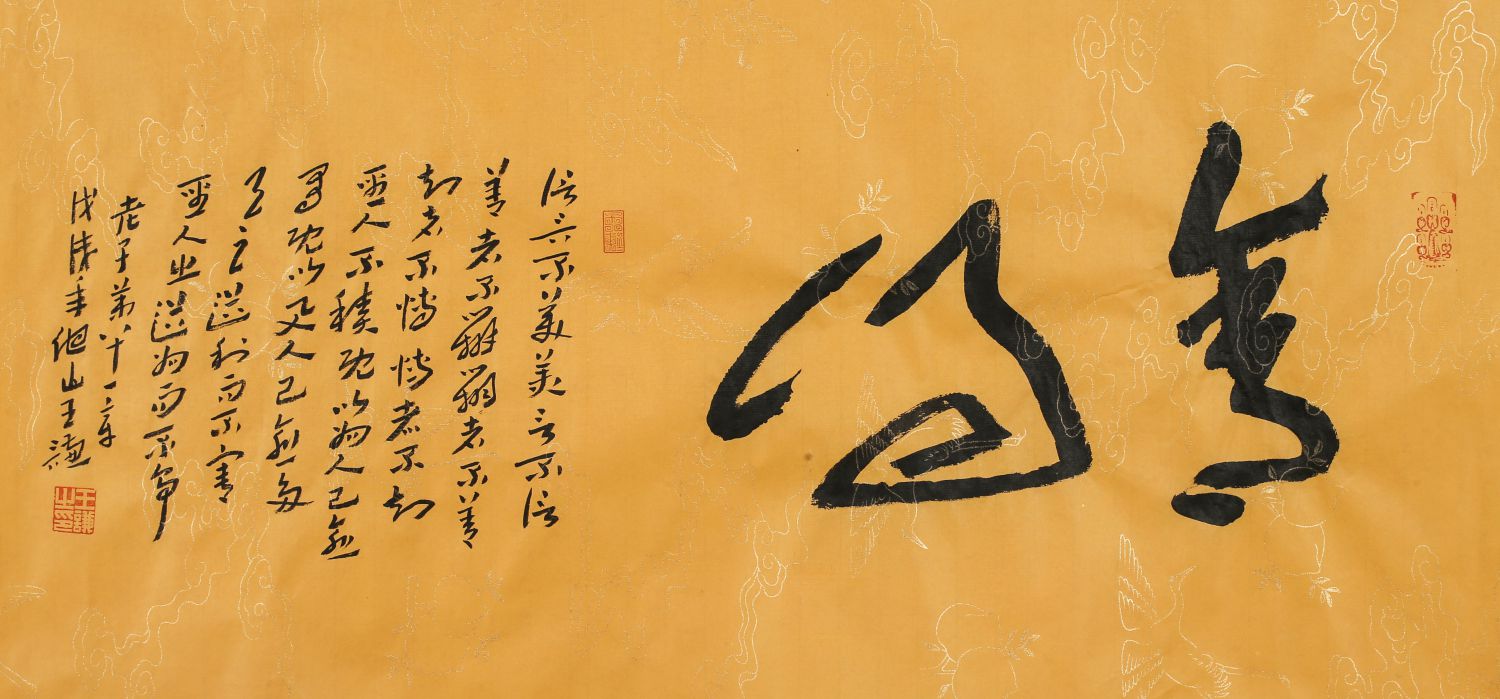 信言不美美言不信
善者不辯辯者不善
知者不博博者不知
聖人不積既以為人己愈
有既以與人己愈多
天之道利而不害
聖人之道為而不爭
老子第八十一章
戊戌年山王謙
王謙之印